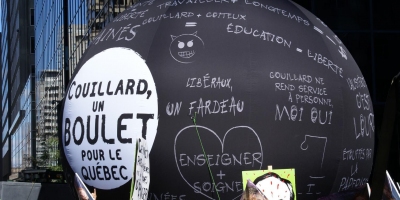 TRAVAILLER + LONGTEMPS
COUILLARD + COITEUX
ÉDUCATION - LIBERTÉ
COUILLARD,
UN
BOULET
POUR LE
QUÉBEC
LIBÉRAUX,
UN FARDEAU
COUILLARD NE
REND SERVICE
À PERSONNE,
MOI OUI
ENSEIGNER
+
SOIGNER